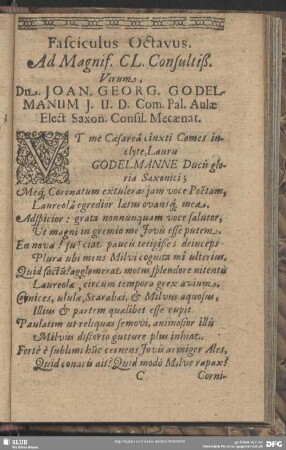 Fasciculus Octavus.
Ad Magnif. CL. Consultiß.
Virum,
Dn. JOAN. GEORG. GODEL-
MANUM J. U. D. Com. Pal. Aulæ
Elect Saxon. Consil. Mecænat.
VT me Cæsareâ cinxti Comes in-
clyte, Lauru
GODELMANNE Ducũ glo-
ria Saxonici;
Meq; Coronatum extuleras jam voce Poëtam,
Laureolâ egredior latus ovansq; meâ.
Adspicior: grata nonnunquam voce salutor,
Ut magni in gremio me Jovis esse putem.
En nova! sufficiat paucis tetigisse: deinceps
Plura ubi mens Milvi cognita mî ulterius.
Quid factũ? agglomerat motus splendore nitentis
Laureolæ, circum tempora grex avium.
Cynices, ululæ, Scarabæi, & Milvus aquosus,
Illius & partem qualibet esse cupit.
Paulatim ut reliquas semovi, animosior illis
Milvus distorto gutture plus inhiat.
Fortè è sublimi húc cernens Jovis armiger Ales,
Quid conaris ait? Quid modò Milve rapax?
C
Corni-
SLUB